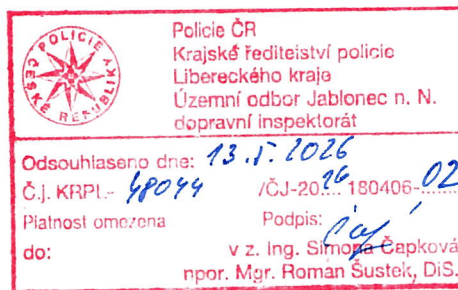 POLICIE ČESKÉ REPUBLIKY
Policie ČR
Krajské ředitelství policie
Libereckého kraje
Územní odbor Jablonec n. N.
dopravní inspektorát
Odsouhlaseno dne: 13.5.2026
Č.j. KRPL- 48044 /ČJ-20.26. 180406-02
Platnost omezena Podpis:
do: v z. Ing. Simona Čapková
npor. Mgr. Roman Šustek, DiS.